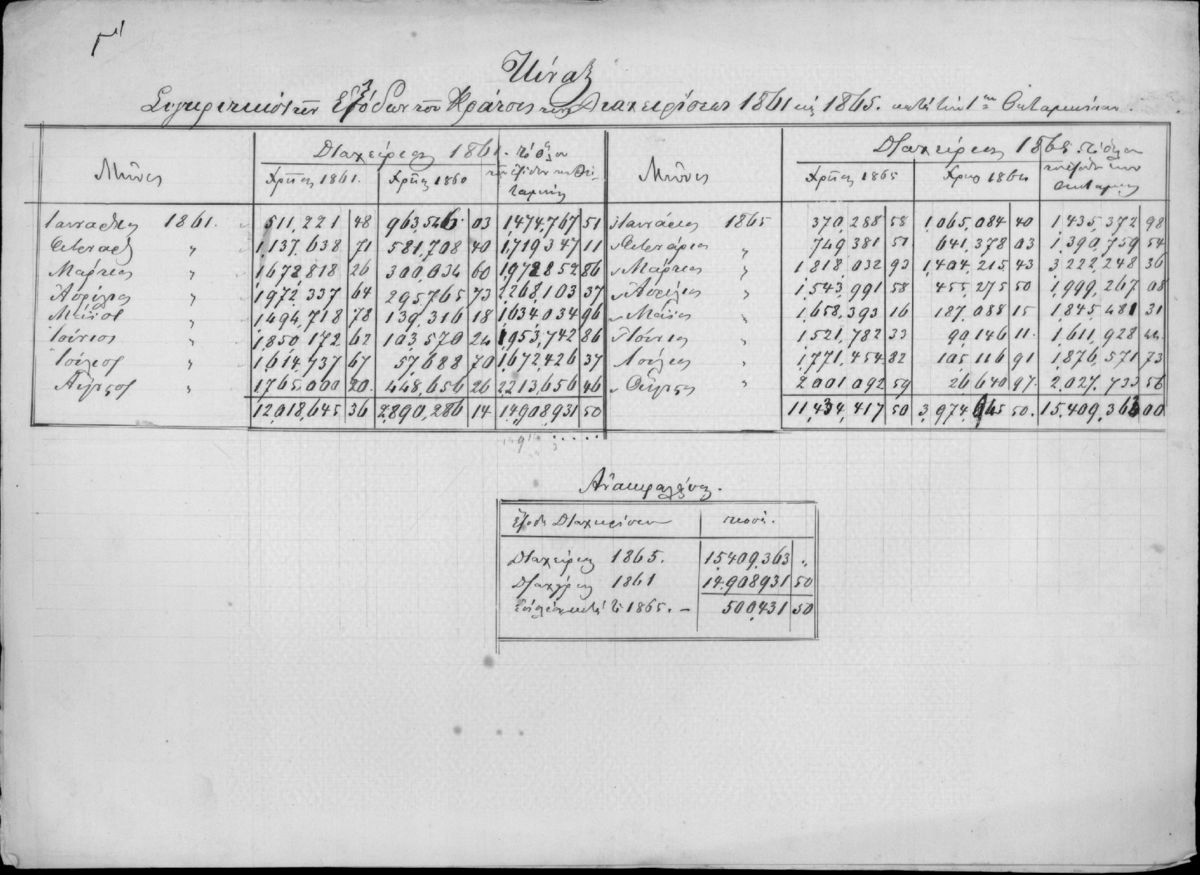 γ'
Πίναξ
Συγκριτικὸς τῶν Ἐξόδων τοῦ Κράτους τῶν Διαχειρίσεων 1861 καὶ 1865. κατὰ τὴν 1ην Ὀκταμηνίαν.
Μῆνες | Διαχείρισις 1861. | Μῆνες | Διαχείρισις 1865
Χρῆσις 1861. | Χρῆσις 1860 | τὸ ὅλον τῶν ἐξόδων τῆς Ὀκταμηνίας | Χρῆσις 1865 | Χρῆσις 1864 | τὸ ὅλον τῶν ἐξόδων τῆς ὀκταμηνίας
Ἰανουάριος 1861. 511,221 48 963,546 03 1,474,767 51 Ἰανουάριος 1865 370,288 58 1,065,084 40 1,435,372 98
Φεβρουάριος " 1,137,638 71 581,708 40 1,719,347 11 Φεβρουάριος " 749,381 51 641,378 03 1,390,759 54
Μάρτιος " 1,672,818 26 300,034 60 1,972,852 86 Μάρτιος " 1,818,032 93 1,404,215 43 3,222,248 36
Ἀπρίλιος " 1,972,337 64 295,765 73 2,268,103 37 Ἀπρίλιος " 1,543,991 58 455,275 50 1,999,267 08
Μάϊος " 1,494,718 78 139,316 18 1,634,034 96 Μάϊος " 1,658,393 16 187,088 15 1,845,481 31
Ἰούνιος " 1,850,172 62 103,570 24 1,953,742 86 Ἰούνιος " 1,521,782 33 90,146 11 1,611,928 44
Ἰούλιος " 1,614,737 67 57,688 70 1,672,426 37 Ἰούλιος " 1,771,454 82 105,116 91 1,876,571 73
Αὔγουστος " 1,765,000 20 448,656 26 2,213,656 46 Αὔγουστος " 2,001,092 59 26,640 97 2,027,733 56
12,018,645 36 2,890,286 14 14,908,931 50 11,434,417 50 3,974,945 50 15,409,363 00
Ἀνακεφαλαίωσις.
Ἔξοδα Διαχειρίσεων | ποσά.
Διαχείρισις 1865. 15,409,363 "
Διαχείρισις 1861 14,908,931 50
1865. – 500,431 50